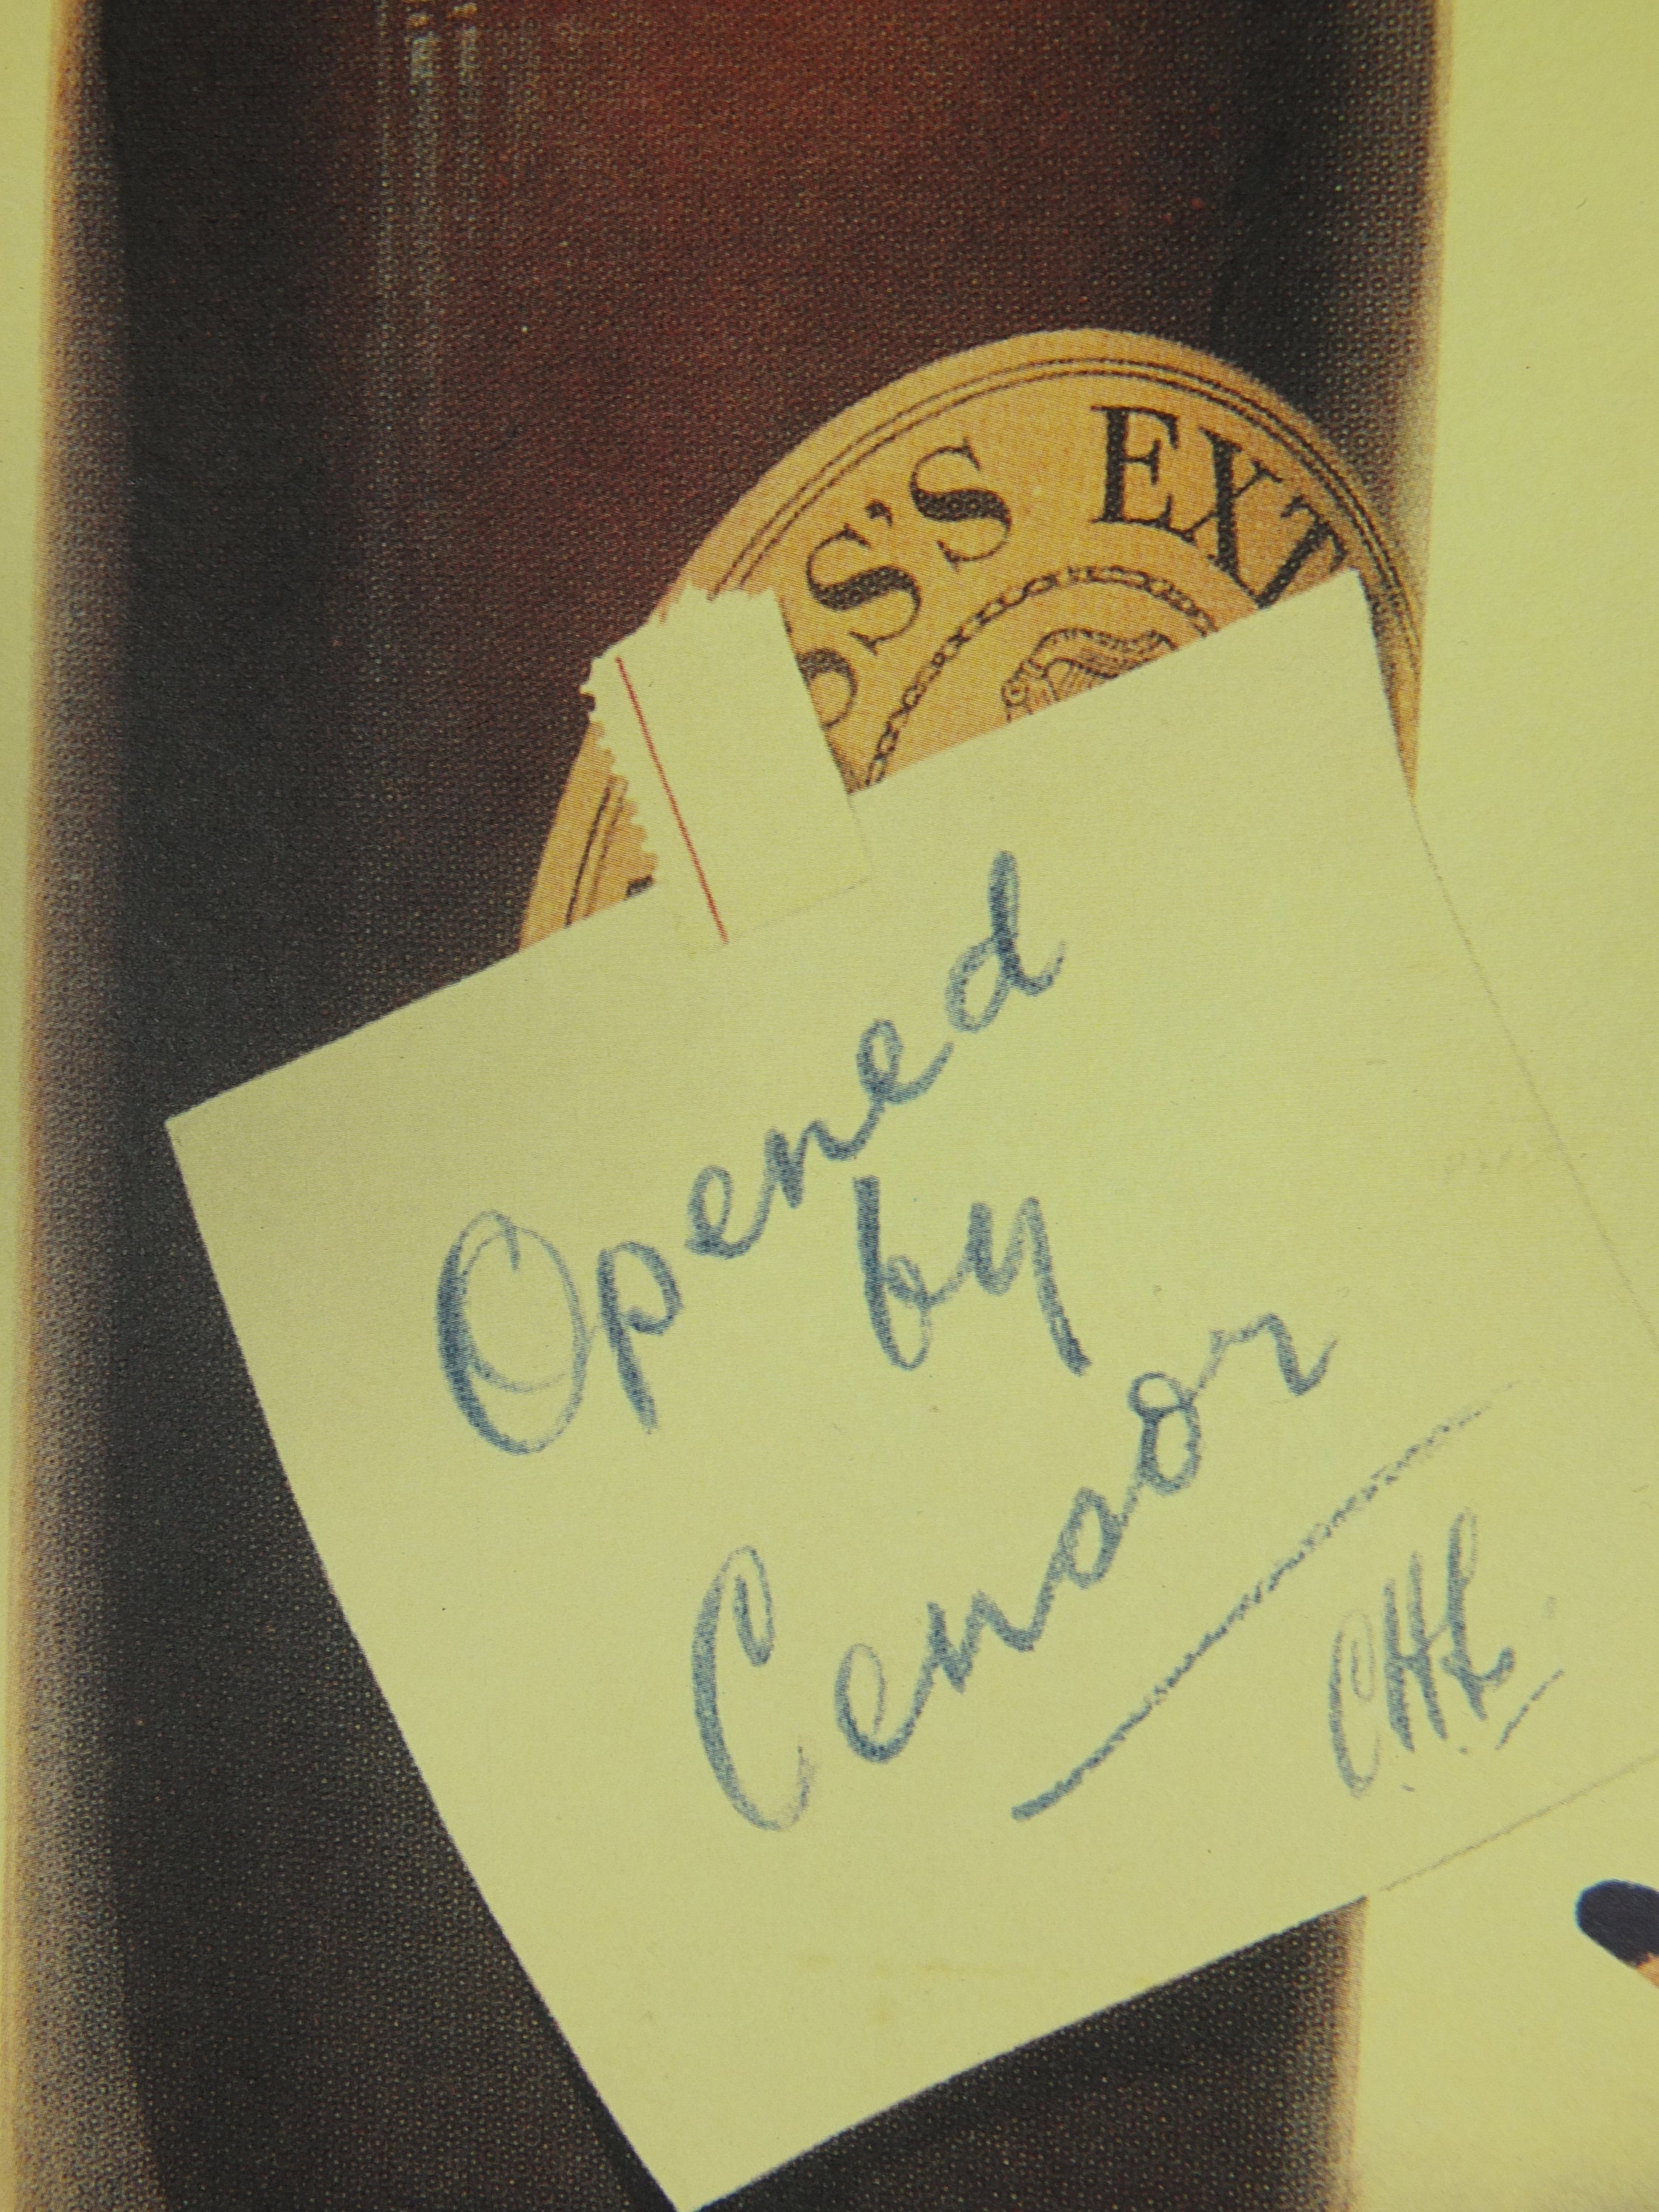 SS'S EXT
Opened
by
Censor
CHL.